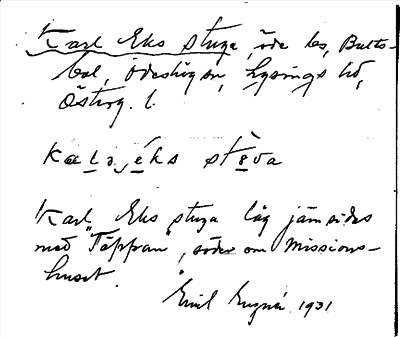 Karl Eks stuga, öde lhs, Bults-
bol, Ödeshögs sn, Lysings hd,
Österg. l.
Kaɩə éks stèva
Karl Eks stuga låg jämsides
med "Täppan", söder om Missions-
huset.
Emil 1931